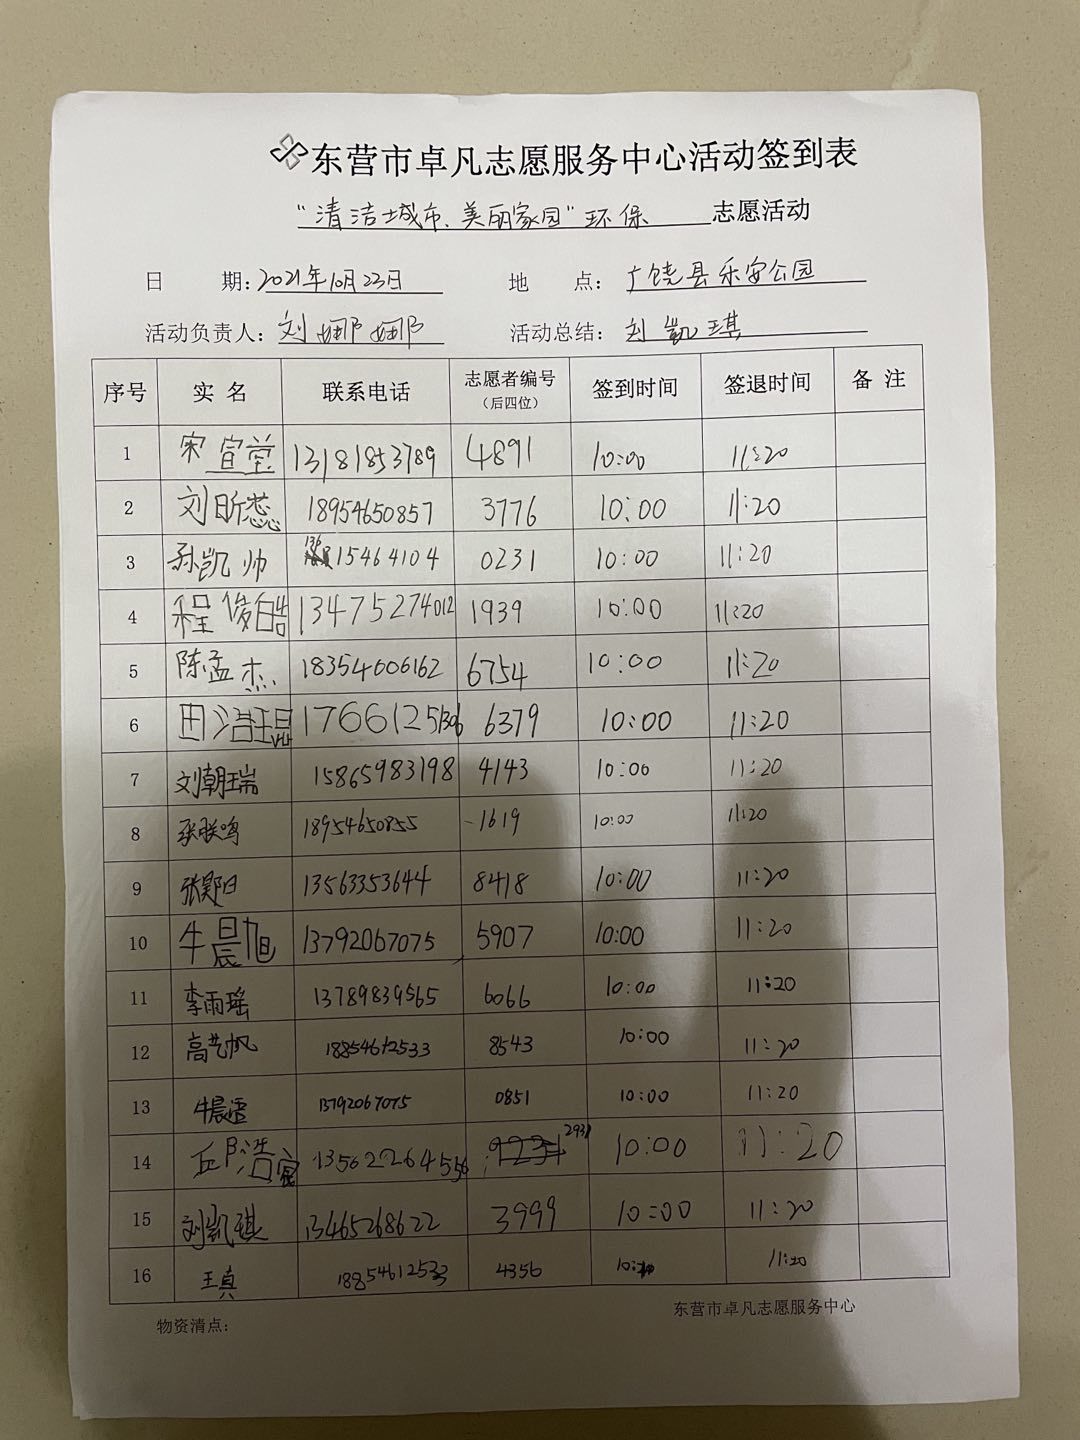 东营市卓凡志愿服务中心活动签到表
“清洁城市、美丽家园”环保 志愿活动
日 期：2021年10月23日 地 点：广饶县乐安公园
活动负责人：刘娜娜 活动总结：刘凯琪
序号 实名 联系电话 志愿者编号（后四位） 签到时间 签退时间 备注
1 宋宣莹 13181853789 4891 10:00 11:20
2 刘昕蕊 18954650857 3776 10:00 11:20
3 孙凯帅 13615464104 0231 10:00 11:20
4 程俊皓 13475274012 1939 10:00 11:20
5 陈孟杰 18354006162 6754 10:00 11:20
6 田浩琨 17661251306 6379 10:00 11:20
7 刘朝瑞 15865983198 4143 10:00 11:20
8 张联鸣 18954650855 -1619 10:00 11:20
9 张郢日 13563353644 8418 10:00 11:20
10 牛晨旭 13792067075 5907 10:00 11:20
11 李雨瑶 13789839565 6066 10:00 11:20
12 高艺帆 18854612533 8543 10:00 11:20
13 牛晨 13792067075 0851 10:00 11:20
14 邱浩宸 13562264556 2931 10:00 11:20
15 刘凯琪 13465268622 3999 10:00 11:20
16 王真 18854612533 4356 11:20
物资清点： 东营市卓凡志愿服务中心